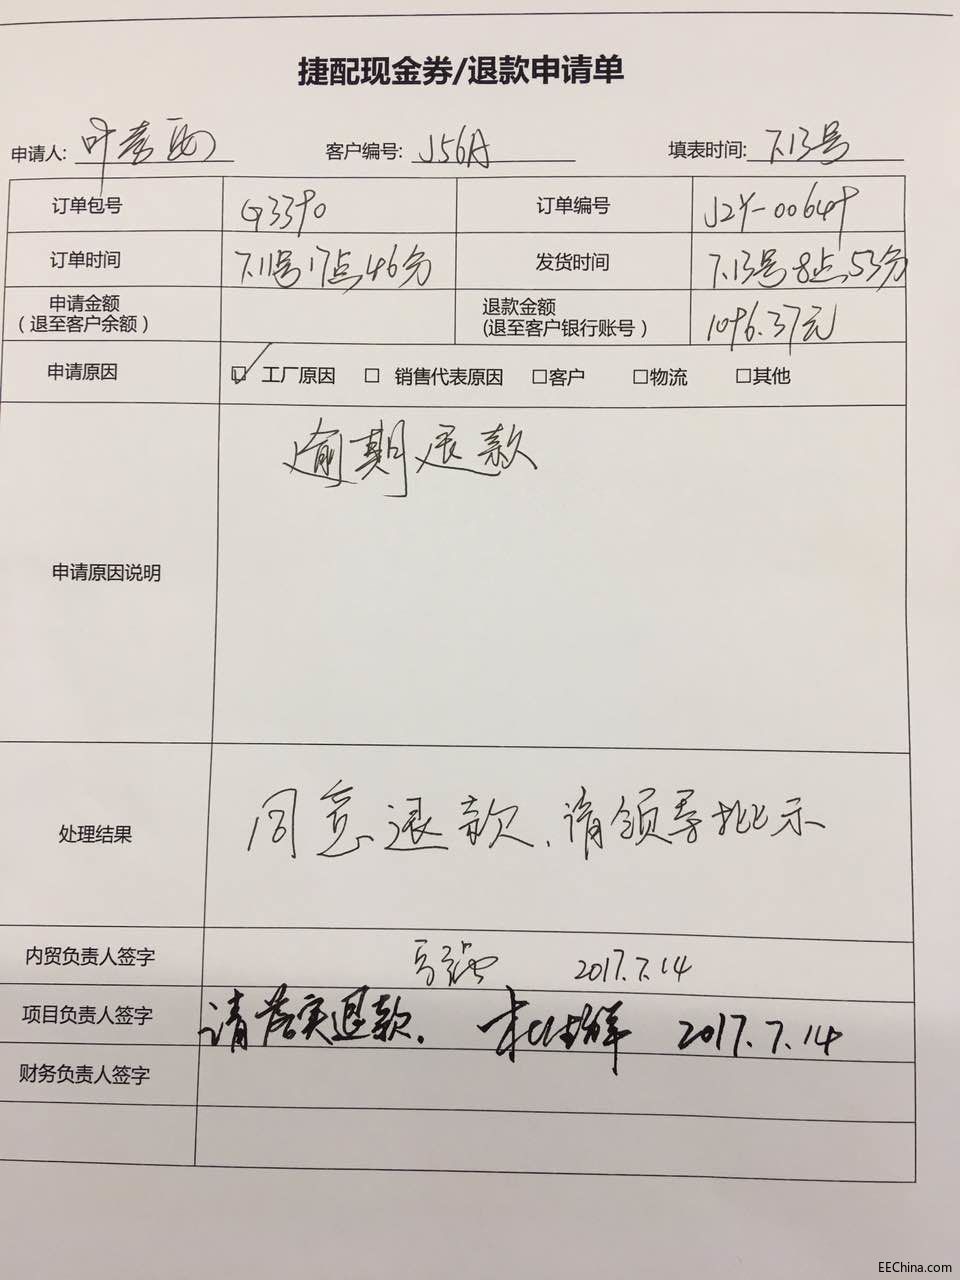 捷配现金券/退款申请单
申请人: 叶 客户编号: J56A 填表时间: 7.13号
订单包号 G3390 订单编号 J2Y-00649
订单时间 7.11号17点46分 发货时间 7.13号8点53分
申请金额 退款金额
(退至客户余额) (退至客户银行账号) 1096.37元
申请原因 ☑ 工厂原因 □ 销售代表原因 □客户 □物流 □其他
逾期退款
申请原因说明
处理结果 同意退款,请领导批示
内贸负责人签字 2017.7.14
项目负责人签字 请落实退款. 2017.7.14
财务负责人签字
EEChina.com